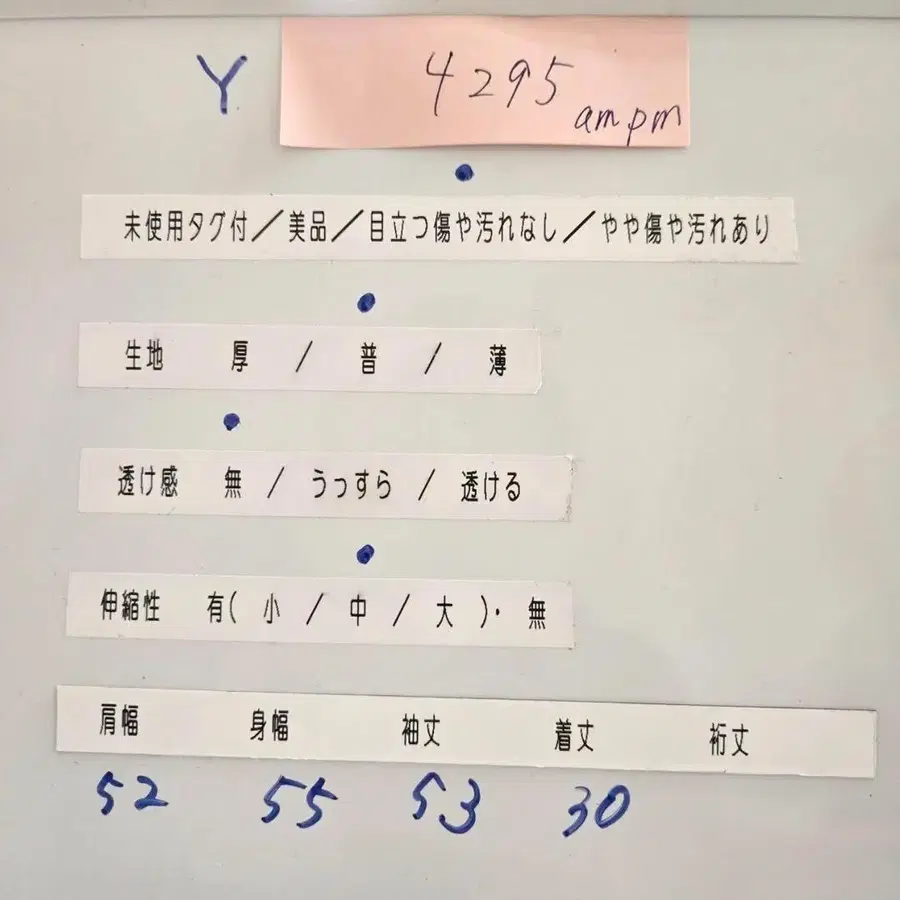 Y 4295
am pm
未使用タグ付／美品／目立つ傷や汚れなし／やや傷や汚れあり
生地 厚 / 普 / 薄
透け感 無 / うっすら / 透ける
伸縮性 有( 小 / 中 / 大 )・ 無
肩幅 身幅 袖丈 着丈 裄丈
52 55 53 30